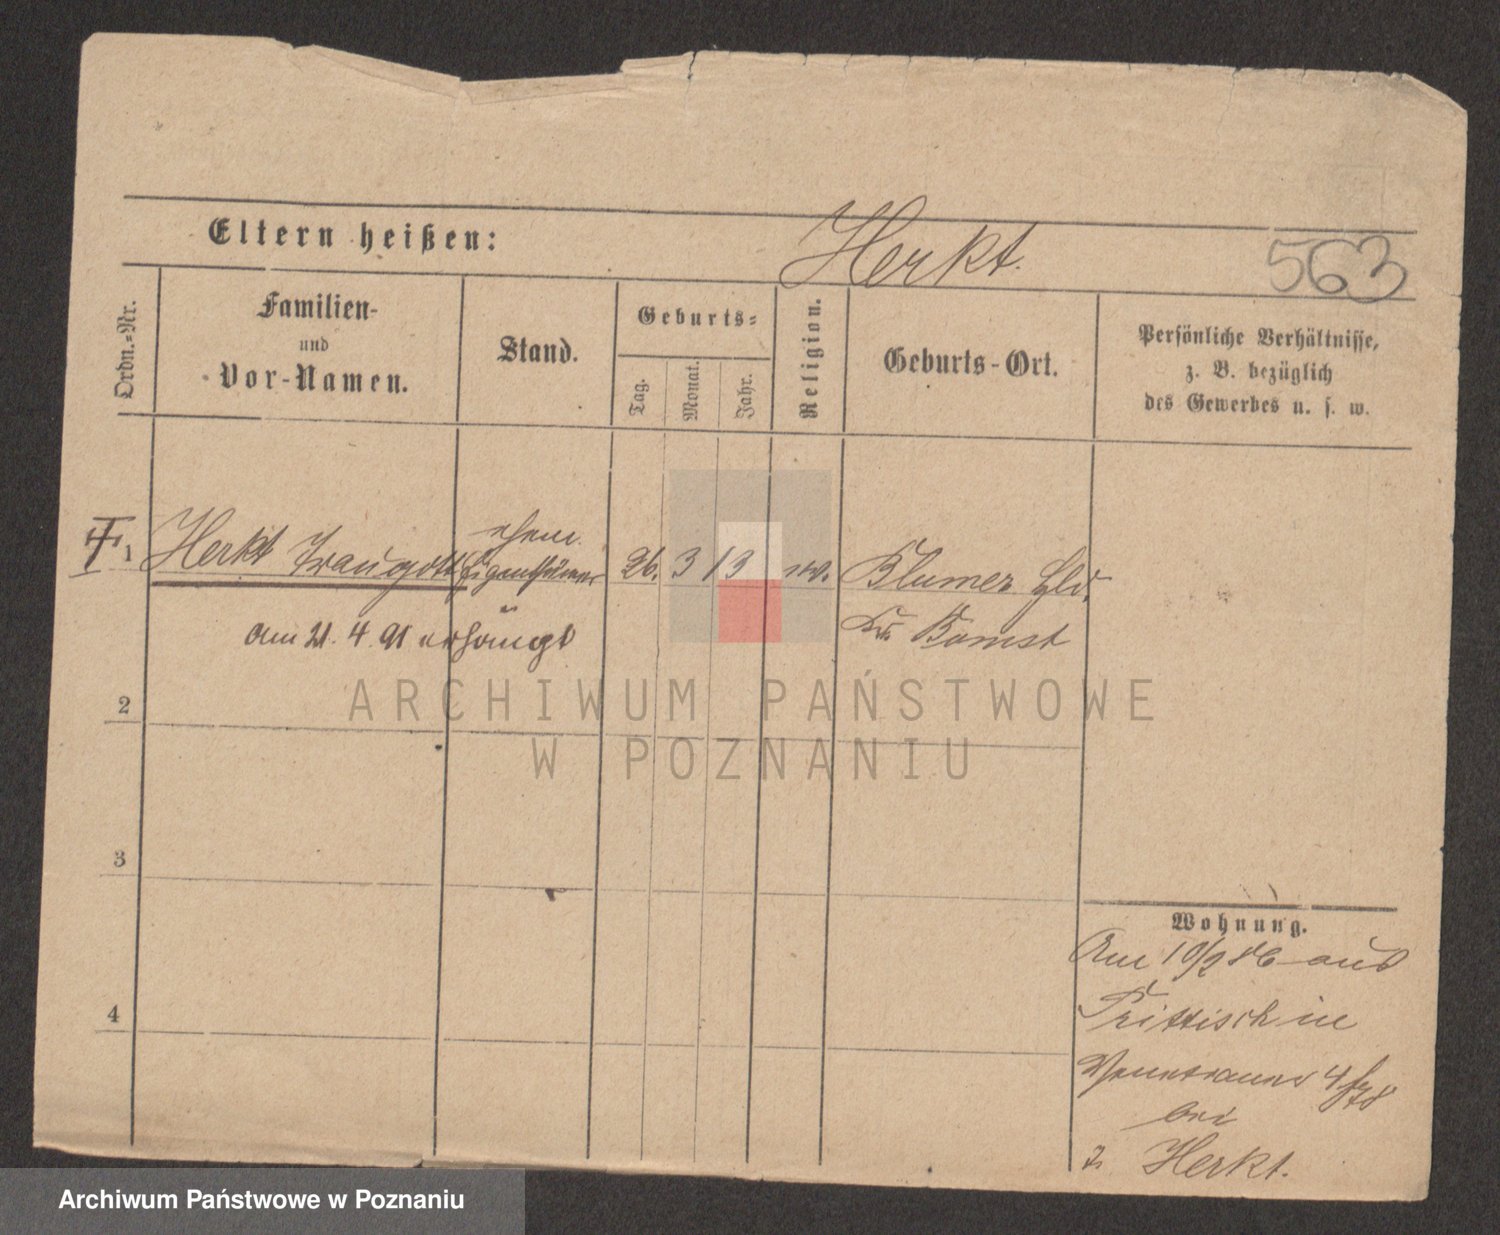 Eltern heißen: Herkt. 563
Ordn.-Nr.
Familien-
und
Vor-Namen.
Stand.
Geburts-
Tag.
Monat.
Jahr.
Religion.
Geburts-Ort.
Persönliche Verhältnisse,
z. B. bezüglich
des Gewerbes u. s. w.
ehem.
1 Herkt Traugott Eigenthümer 26. 3 13 ev. Blumer Hld.
Kr. Bomst
am 21. 4. 91 erhängt
2
3
4
Wohnung.
Am 10/2 86 aus
Trittisch in
4
bei
Herkt.
ARCHIWUM PAŃSTWOWE
W POZNANIU
Archiwum Państwowe w Poznaniu